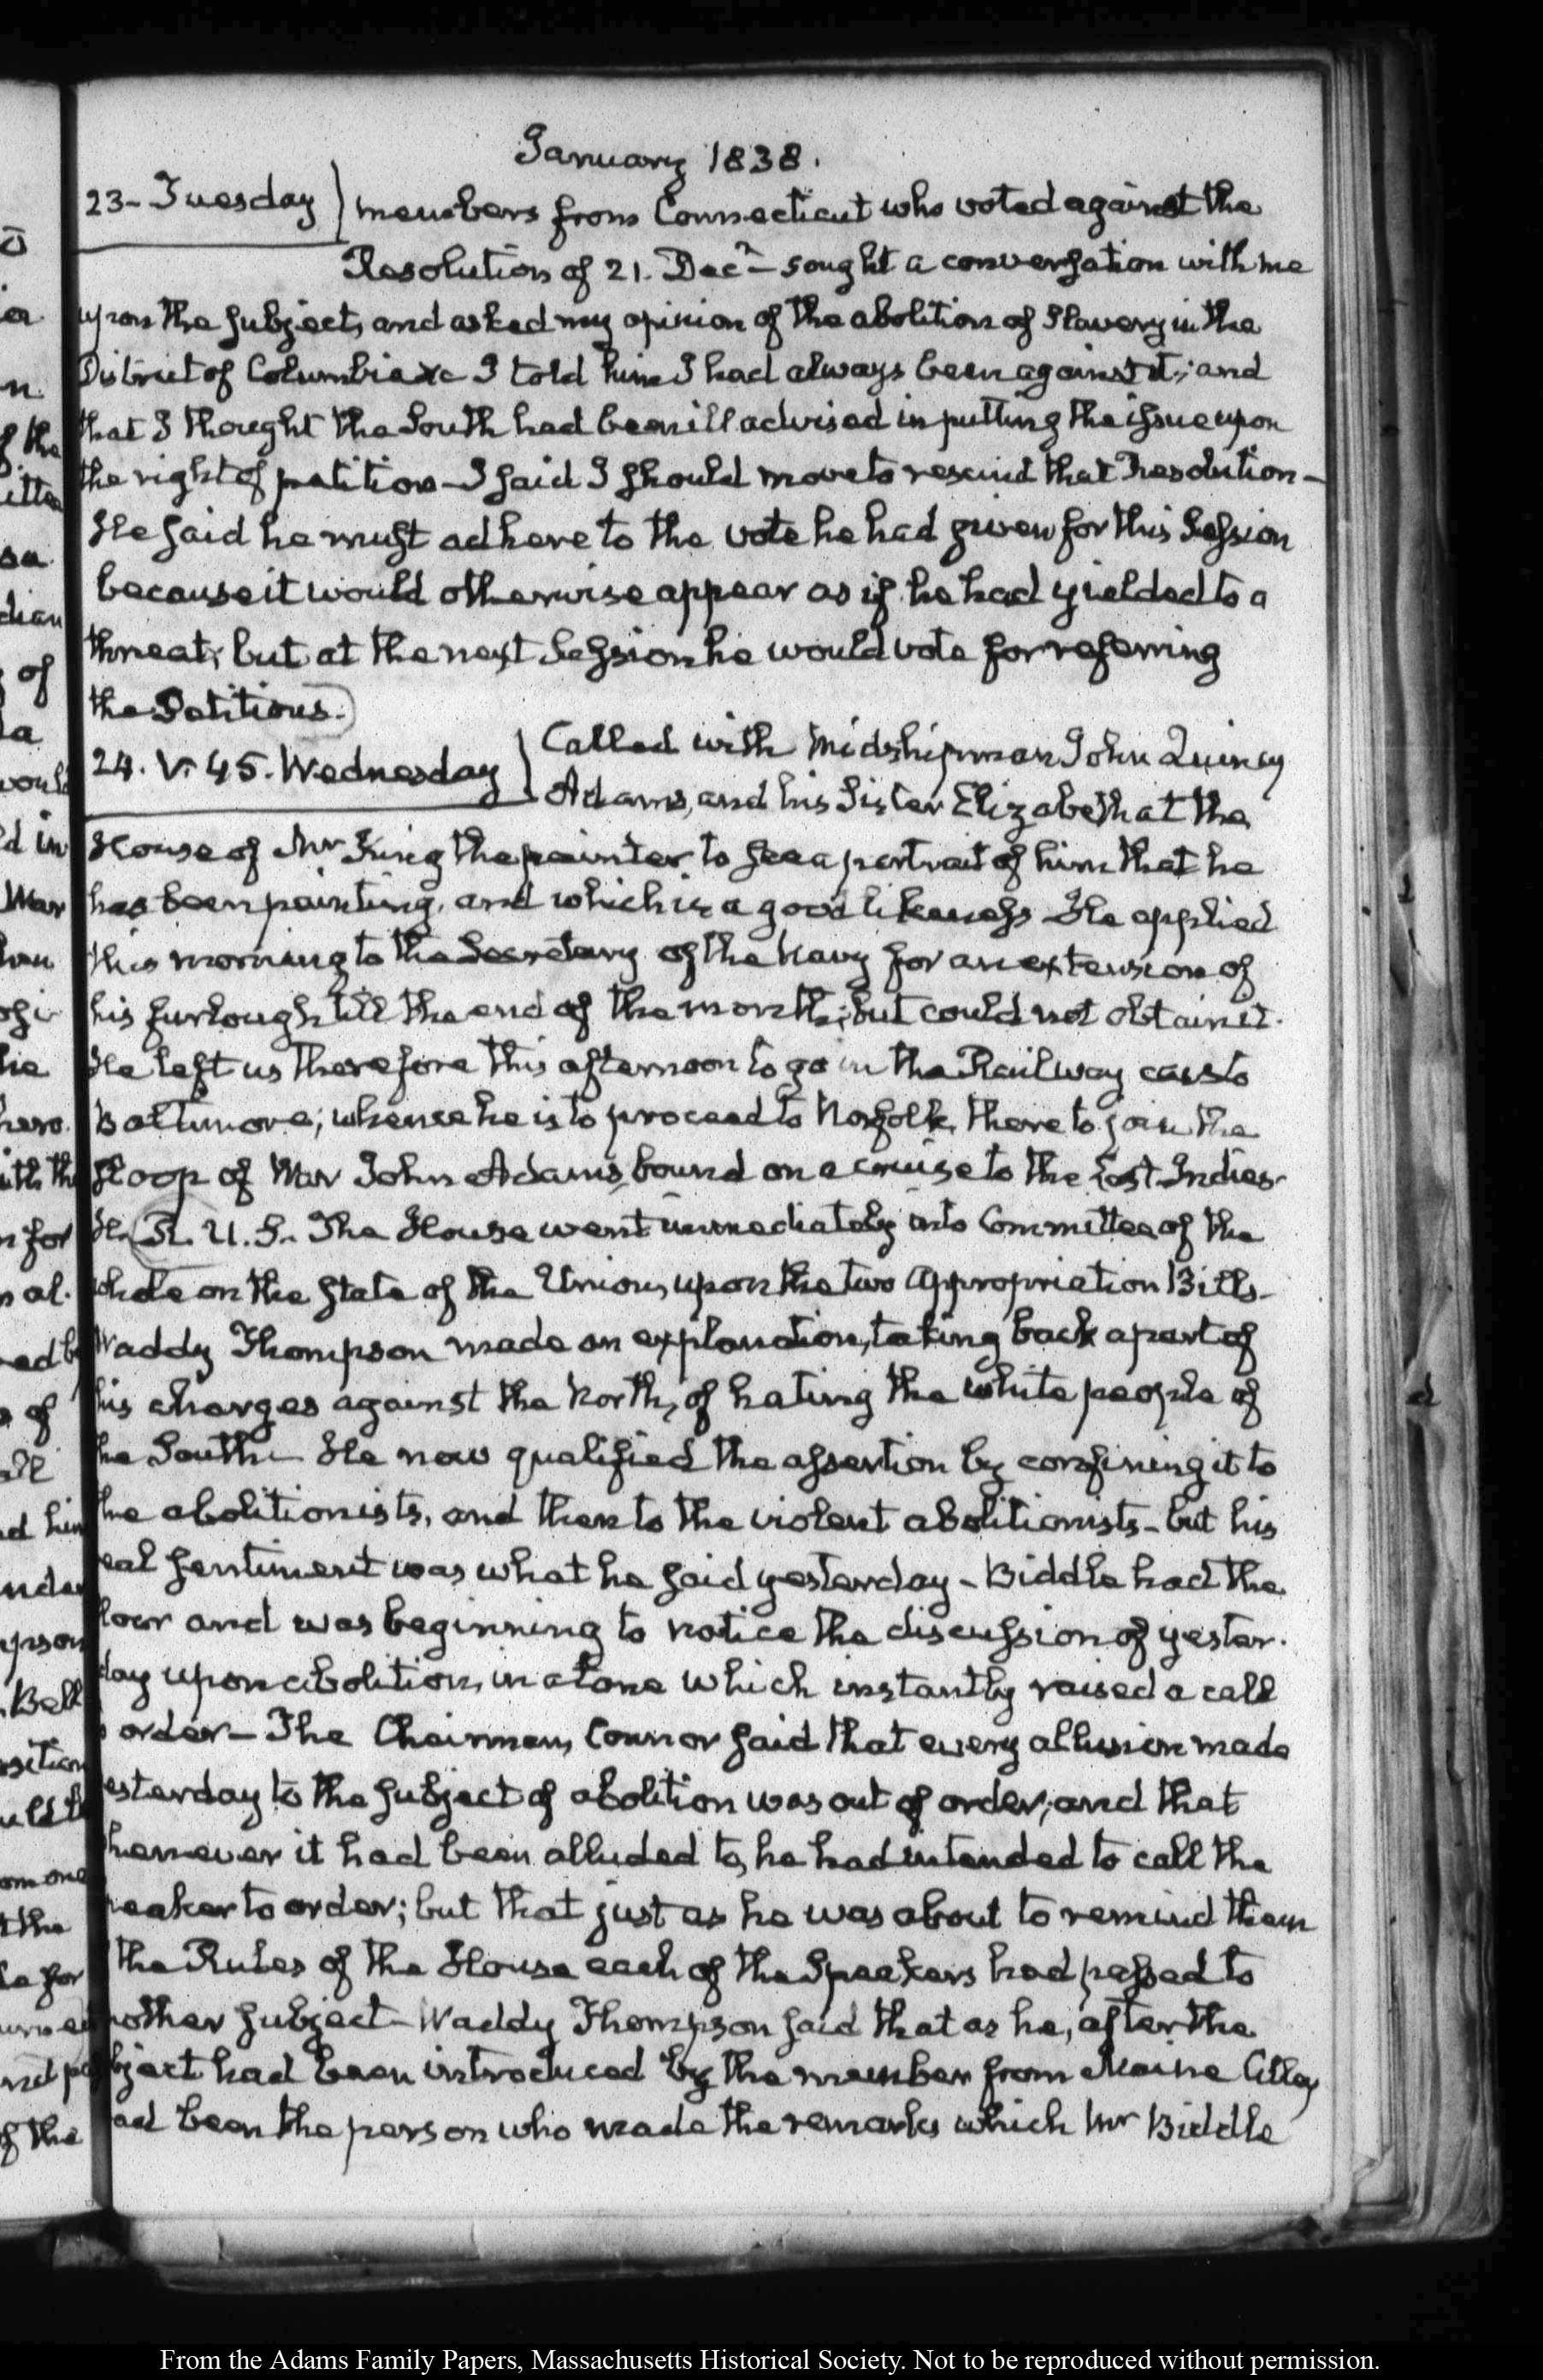 January 1838.
23- Tuesday members from Connecticut who voted against the
Resolution of 21. Decr- sought a conversation with me
upon the subject, and asked my opinion of the abolition of Slavery in the
District of Columbia &c I told him I had always been against it; and
that I thought the South had been ill advised in putting the issue upon
the right of petition- I said I should move to rescind that Resolution-
He said he must adhere to the vote he had given for this Session
because it would otherwise appear as if he had yielded to a
threat; but at the next Session he would vote for referring
the Petitions.
24. V. 45. Wednesday Called with Midshipman John Quincy
Adams, and his Sister Elizabeth at the
House of Mr King the painter to see a portrait of him that he
has been painting, and which is a good likeness He applied
this morning to the Secretary of the Navy for an extension of
his furlough till the end of the month; but could not obtain it.
He left us therefore this afternoon to go in the Railway cars to
Baltimore; whence he is to proceed to Norfolk, there to join the
Sloop of War John Adams, bound on a cruise to the East-Indies-
H. R. U. S. The House went immediately into Committee of the
whole on the state of the Union, upon the two Appropriation Bills-
Waddy Thompson made an explanation, taking back a part of
his charges against the North, of hating the white people of
the South- He now qualified the assertion by confining it to
the abolitionists, and then to the violent abolitionists- but his
real sentiment was what he said yesterday- Biddle had the
floor and was beginning to notice the discussion of yester-
day upon abolition, in a tone which instantly raised a call
to order- The Chairman, Connor said that every allusion made
yesterday to the subject of abolition was out of order; and that
whenever it had been alluded to, he had intended to call the
Speaker to order; but that just as he was about to remind them
of the Rules of the House each of the Speakers had passed to
another subject- Waddy Thompson said that as he, after the
subject had been introduced by the member from Maine
had been the person who made the remarks which Mr Biddle
From the Adams Family Papers, Massachusetts Historical Society. Not to be reproduced without permission.